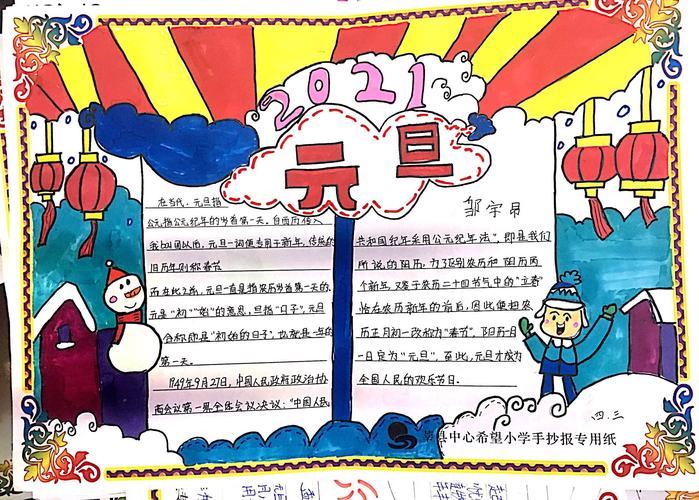 2021
元旦
邹宇昂
在当代，元旦指
公元指公元纪年的岁首第一天，自西历传入
我国以南，元旦一词便专用于新年，传统的
旧历年则称春节
而在此之前，元旦一直是指农历岁首第一天的，
元是"初""始"的意思，旦指"日子"，元旦
合称即是"初始的日子"，也就是一年的
第一天。
1949年9月27日，中国人民政府政治协
商会议第一界全体会议决议："中国人民
共和国纪年采用公元纪年法"，即是我们
所说的阳历，为了区别农历和阳历两
个新年，又鉴于农历二十四节气中的"立春"
恰在农历新年的前后，因此便把农
历正月初一改称为"春节"，阳历一月
一日定为"元旦"，至此，元旦才成为
全国人民的欢乐节日。
四.三
县中心希望小学手抄报专用纸